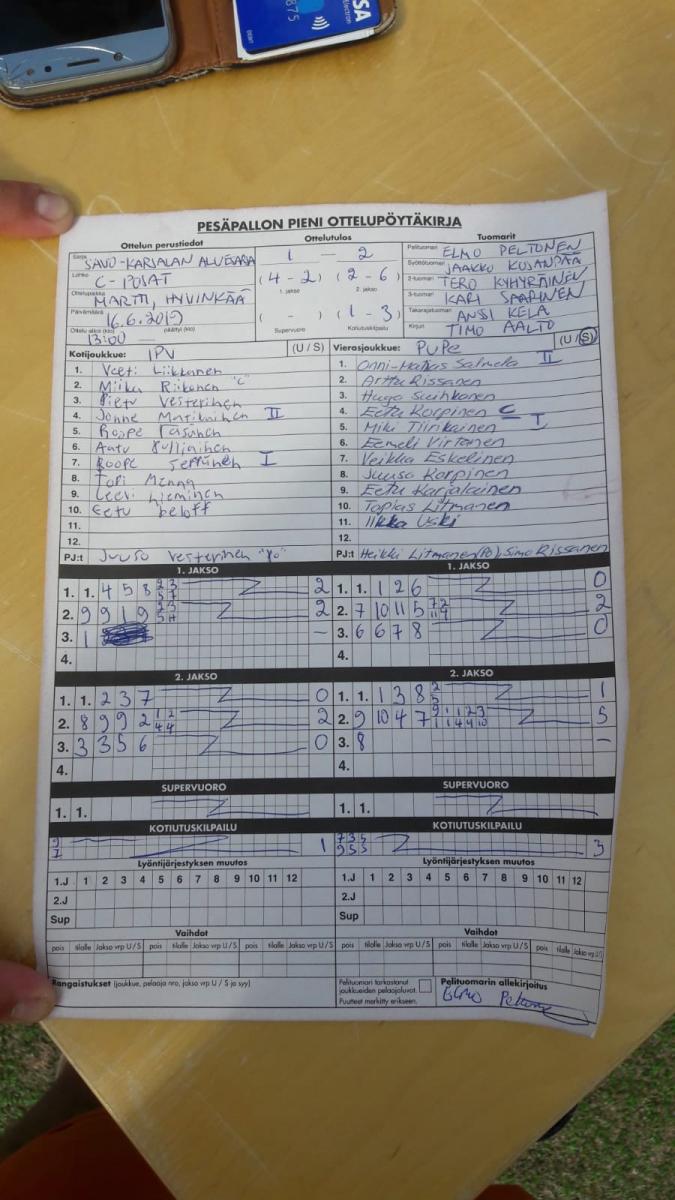 VISA
electron
875
PESÄPALLON PIENI OTTELUPÖYTÄKIRJA
Ottelun perustiedot
Ottelutulos
Tuomarit
Sarja SAVO-KARJALAN ALUESARJA
Lohko C-POJAT
Ottelupaikka MARTTI, HYVINKÄÄ
Päivämäärä 16.6.2019
Ottelu alkoi (klo) 13:00 päättyi (klo)
1 - 2
(4 - 2) (2 - 6)
1. jakso 2. jakso
( - ) (1 - 3)
Supervuoro Kotiutuskilpailu
Pelituomari ELMO PELTONEN
Syöttötuomari JAAKKO KUSANPÄÄ
2-tuomari TERO KYHYRÄINEN
3-tuomari KARI SAARINEN
Takarajatuomari ANSSI KELA
Kirjuri TIMO AALTO
Kotijoukkue: IPV (U / S)
1. Veeti Liikkanen
2. Miika Riikonen "C"
3. Pietu Vesterinen
4. Jonne Matikainen II
5. Roope Räsänen
6. Aatu Pulliainen
7. Roope Seppänen I
8. Topi
9. Leevi Nieminen
10. Eetu Beloff
11.
12.
PJ:t Juuso Vesterinen "PO"
Vierasjoukkue: PuPe (U / S)
1. Onni-Matias Salmela II
2. Arttu Rissanen
3. Hugo Suihkonen
4. Eetu Korpinen C
5. Miki Tiirikainen I
6. Eemeli Virtanen
7. Veikka Eskelinen
8. Juuso Korpinen
9. Eetu Karjalainen
10. Topias Litmanen
11. Iikka Uski
12.
PJ:t Heikki Litmanen (PO), Simo Rissanen
1. JAKSO
1. 1. 4 5 8 2
2. 9 9 1 9 2
3. 1 -
4.
1. JAKSO
1. 1. 1 2 6 0
2. 7 10 11 5 2
3. 6 6 7 8 0
4.
2. JAKSO
1. 1. 2 3 7 0
2. 8 9 9 2 1 2 4 4 2
3. 3 3 5 6 0
4.
2. JAKSO
1. 1. 1 3 8 2 5 1
2. 9 10 4 7 5
3. 8 -
4.
SUPERVUORO
1. 1.
SUPERVUORO
1. 1.
KOTIUTUSKILPAILU
1
KOTIUTUSKILPAILU
7 3 5
9 5 5
3
Lyöntijärjestyksen muutos
1.J 1 2 3 4 5 6 7 8 9 10 11 12
2.J
Sup
Lyöntijärjestyksen muutos
1.J 1 2 3 4 5 6 7 8 9 10 11 12
2.J
Sup
Vaihdot
pois tilalle Jakso vrp U / S pois tilalle Jakso vrp U / S pois tilalle Jakso vrp U / S
Vaihdot
pois tilalle Jakso vrp U / S pois tilalle Jakso vrp U / S pois tilalle Jakso vrp U/S
Rangaistukset (joukkue, pelaaja nro, jakso vrp U / S ja syy)
Pelituomari tarkastanut
joukkueiden pelaajaluvat.
Puutteet merkitty erikseen.
Pelituomarin allekirjoitus
Elmo Peltonen